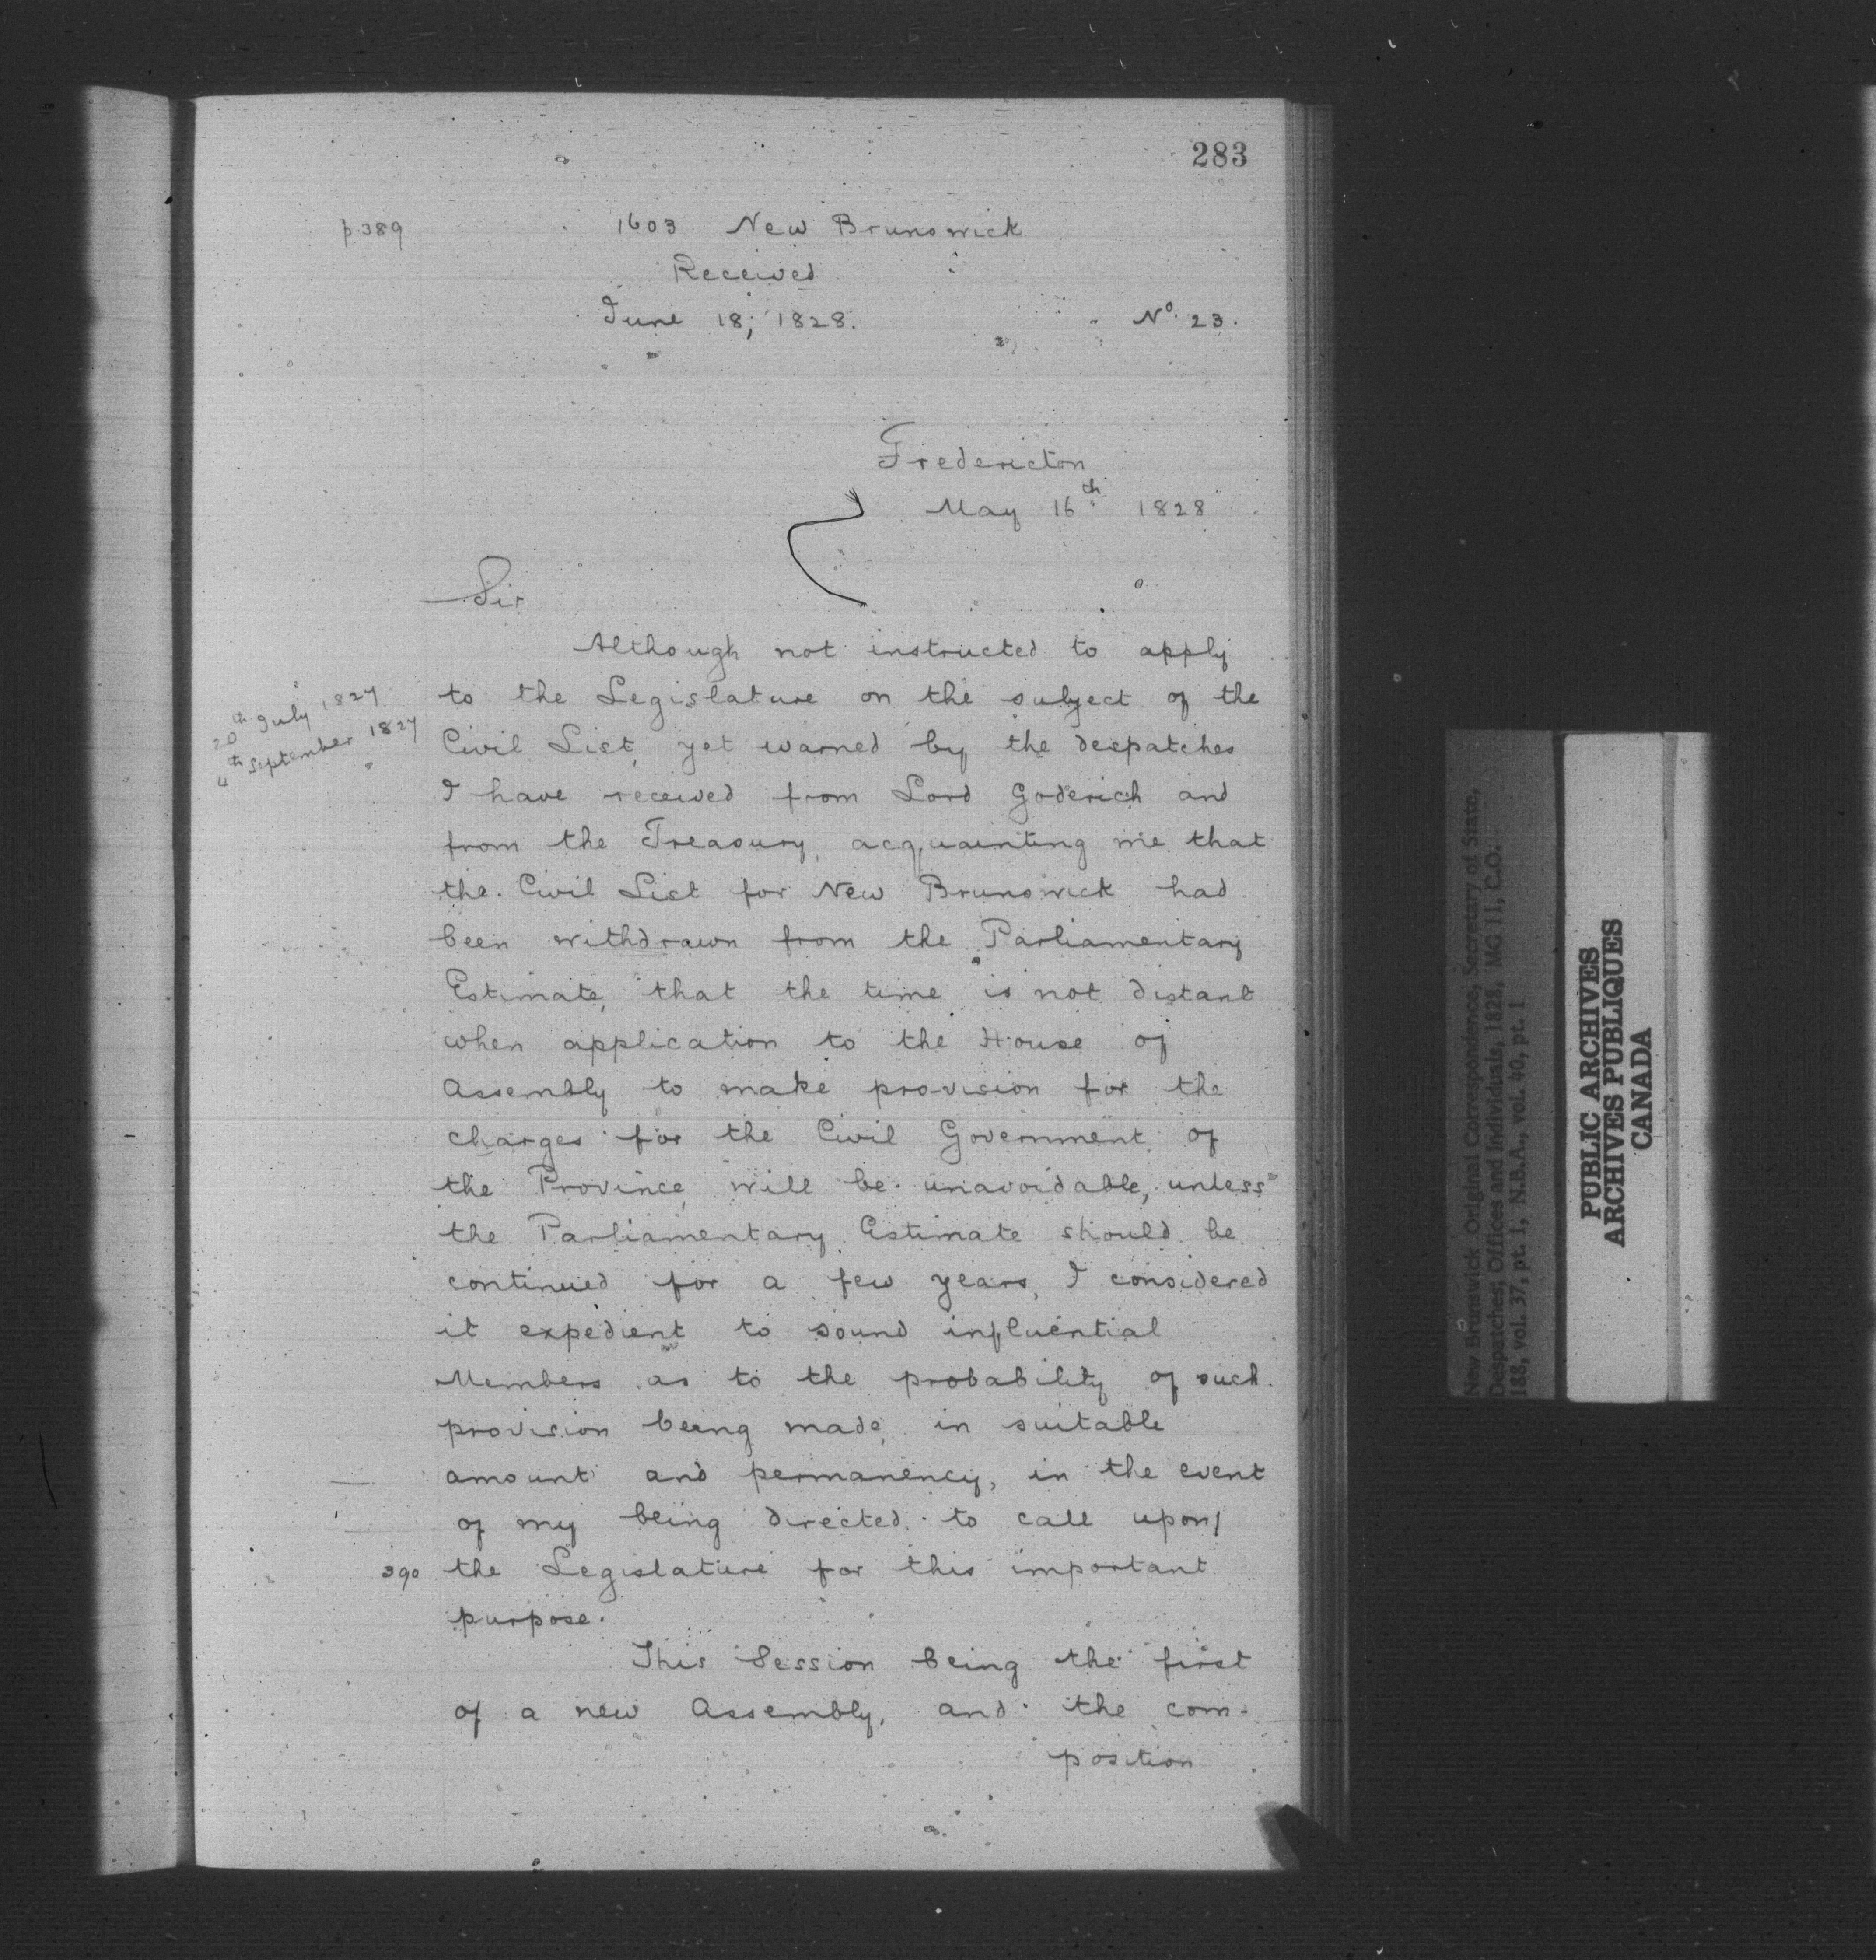 283
p. 389
1603 New Brunswick
Received
June 18, 1828.
No. 23.
Fredericton
May 16th 1828
Sir
Although not instructed to apply
to the Legislature on the subject of the
20th July 1827
4th September 1827
Civil List, yet warned by the despatches
I have received from Lord Goderich and
from the Treasury, acquainting me that
the Civil List for New Brunswick had
been withdrawn from the Parliamentary
Estimate, that the time is not distant
when application to the House of
Assembly to make provision for the
charges for the Civil Government of
the Province, will be unavoidable, unless
the Parliamentary Estimate should be
continued for a few years, I considered
it expedient to sound influential
Members as to the probability of such
provision being made, in suitable
amount and permanency, in the event
of my being directed to call upon/
390 the Legislature for this important
purpose.
This Session being the first
of a new Assembly, and the com-
position
New Brunswick Original Correspondence, Secretary of State,
Despatches; Offices and Individuals, 1828, MG 11, C.O.
188, vol. 37, pt. 1, N.B.A., vol. 40, pt. 1
PUBLIC ARCHIVES
ARCHIVES PUBLIQUES
CANADA